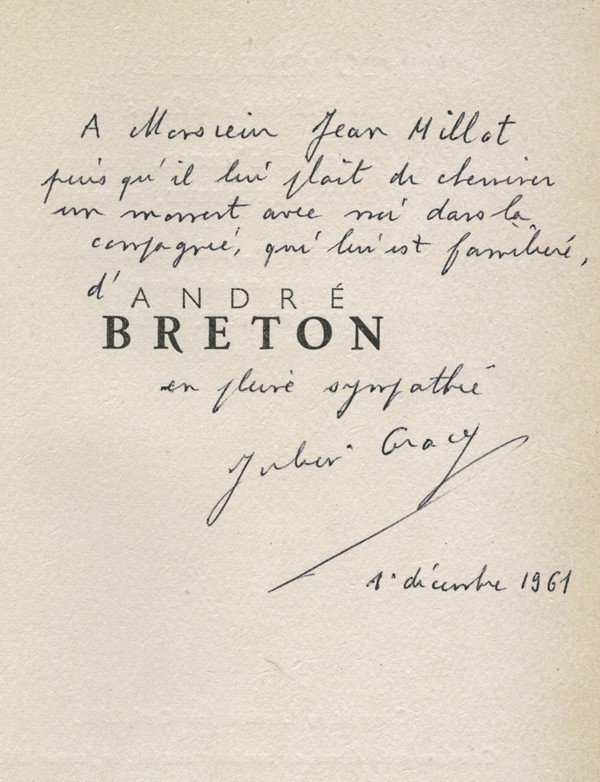 A Monsieur Jean Millot
puisqu'il lui plaît de cheminer
un moment avec moi dans la
compagnie, qui lui est familière,
d'ANDRÉ
BRETON
en pleine sympathie
Julien Gracq
1er décembre 1961